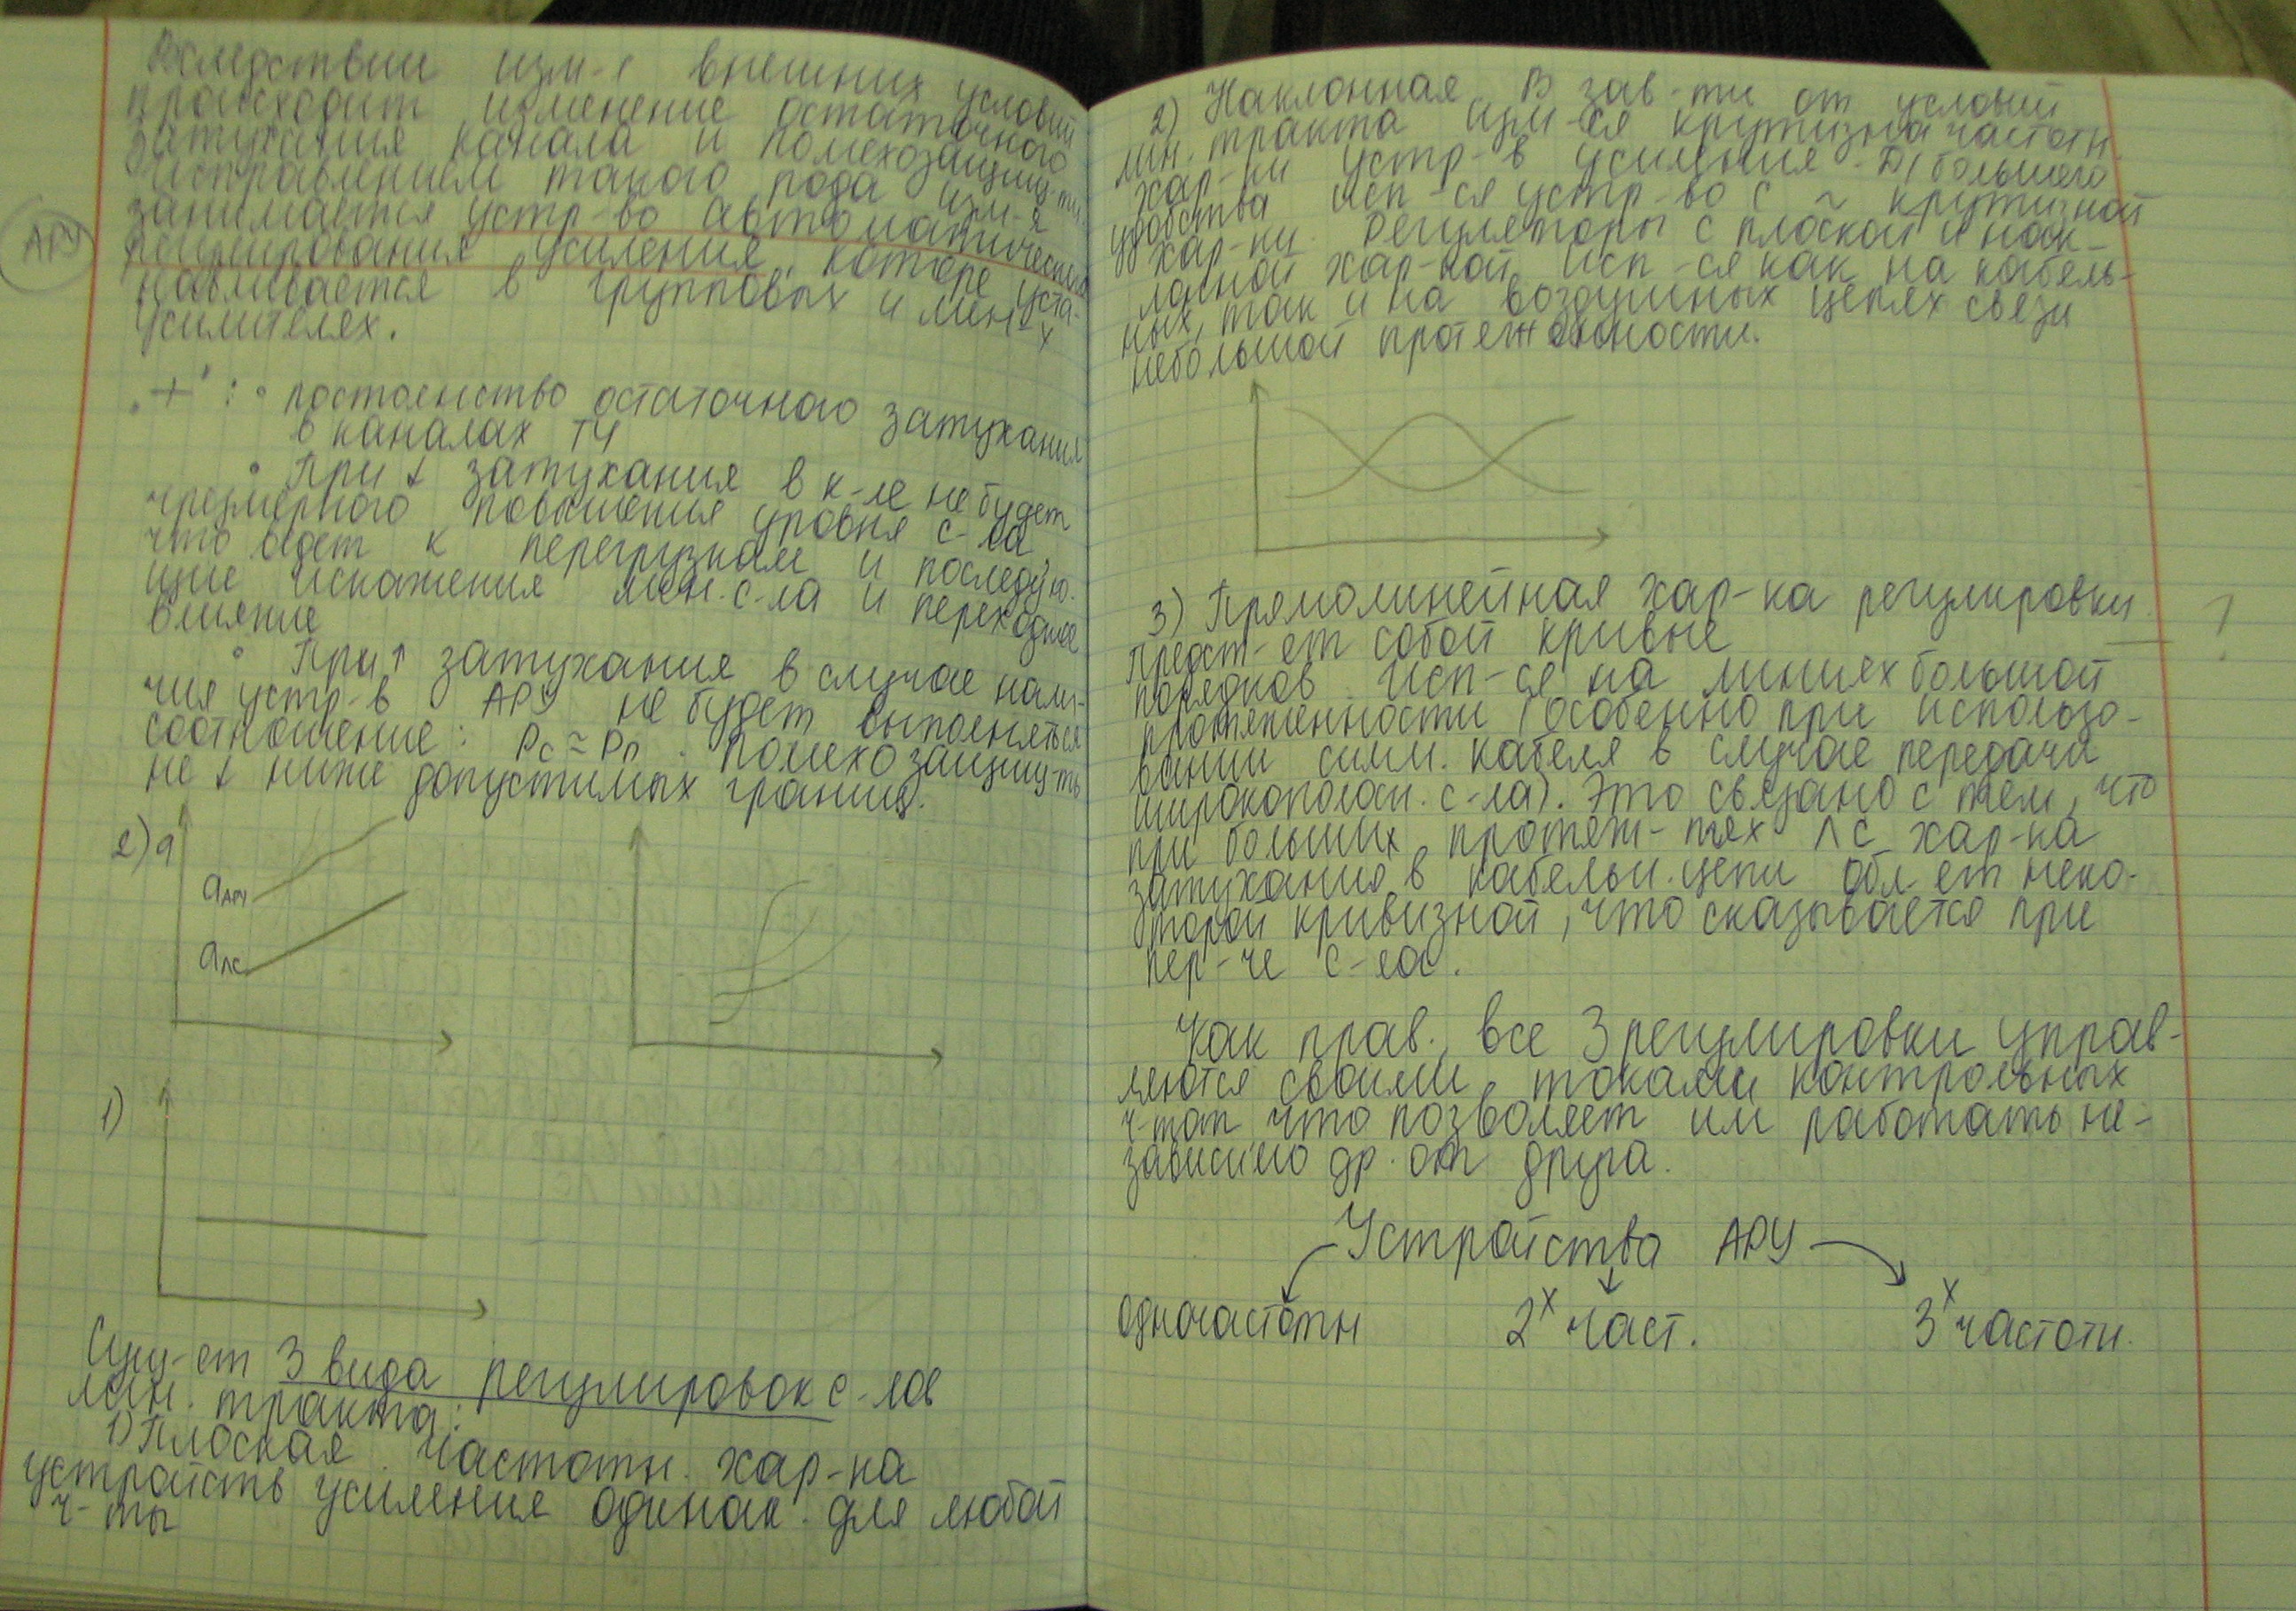 Вследствии изм-е внешних условий
происходит изменение остаточного
затухания канала и помехозащищ-ти.
Исправлением такого рода изм-я
занимается устр-во автоматического
регулирования усиления, которе уста-
навливается в групповых и лин-х
усилителях.
АРУ
"+": • постоянство остаточного затухания
в каналах ТЧ
• При ↓ затухания в к-ле не будет
чрезмерного повышения уровня с-ла
что ведет к перегрузкам и последую-
щие искажения лин. с-ла и переходное
влияние
• При ↑ затухания в случае нали-
чия устр-в АРУ не будет выполняться
соотношение: Pс ≈ Pп. Помехозащищ-ть
не ↓ ниже допустимых границ.
2) a
aАРУ
aЛС
1)
Сущ-ет 3 вида регулировок с-лов
лин. тракта:
1) Плоская. Частотн. хар-ка
устройств усиления одинак. для любой
ч-ты
2) Наклонная. В зав-ти от условий
лин. тракта изм-ся крутизна частотн.
хар-ки устр-в усиления. Д/большего
удобства исп-ся устр-во с ~ крутизной
хар-ки. Регуляторы с плоской и нак-
лонной хар-кой исп-ся как на кабель-
ных, так и на воздушных цепях связи
небольшой протяженности.
3) Прямолинейная хар-ка регулировки
предст-ет собой кривые — ?
порядков. Исп-ся на линиях большой
протяженности (особенно при использо-
вании симм. кабеля в случае передачи
широкополосн. с-ла). Это связано с тем, что
при больших протяж-тях ЛС хар-ка
затухания в кабельн. цепи обл-ет неко-
торой кривизной, что сказывается при
пер-че с-ла.
Как прав., все 3 регулировки управ-
ляются своими токами контрольных
ч-тот что позволяет им работать не-
зависимо др. от друга.
Устройства АРУ
одночастотн 2х част. 3х частотн.